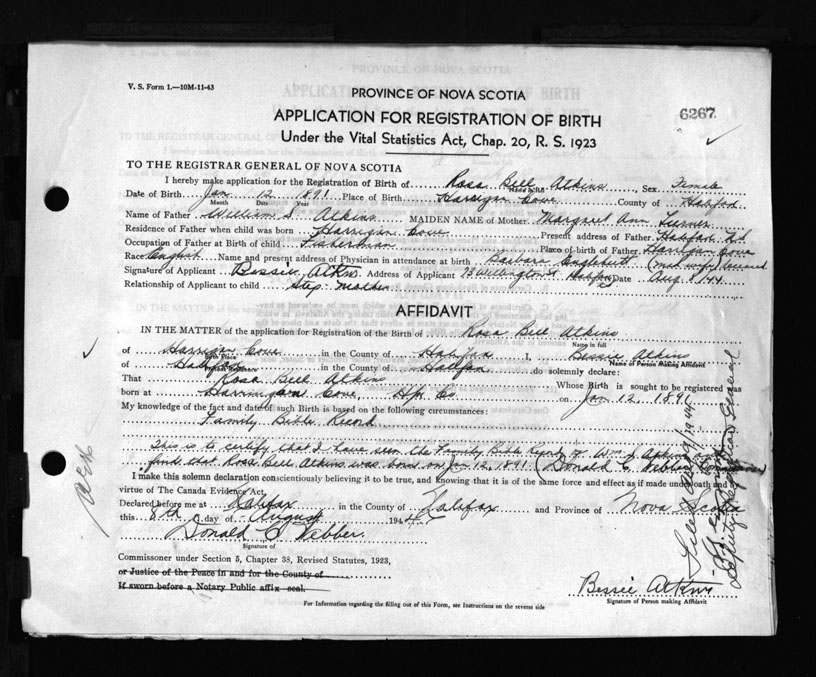 V. S. Form 1.—10M-11-43
PROVINCE OF NOVA SCOTIA
6267
APPLICATION FOR REGISTRATION OF BIRTH
Under the Vital Statistics Act, Chap. 20, R. S. 1923
TO THE REGISTRAR GENERAL OF NOVA SCOTIA
I hereby make application for the Registration of Birth of Rosa Bell Atkins, Sex Female
Date of Birth Jan 12 1891 Place of Birth Harrigan Cove County of Halifax
Month Day Year
Name of Father William S. Atkins MAIDEN NAME of Mother Margaret Ann Turner
Residence of Father when child was born Harrigan Cove Present address of Father Halifax N.S.
Occupation of Father at Birth of child Fisherman Place of birth of Father Harrigan Cove
Race English Name and present address of Physician in attendance at birth Barbara (mid wife)
Signature of Applicant Bessie Atkins Address of Applicant 73 Wellington St Halifax Date Aug 8/44
Relationship of Applicant to child Step Mother
AFFIDAVIT
IN THE MATTER of the application for Registration of the Birth of Rosa Bell Atkins
Name in full
of Harrigan Cove in the County of Halifax I, Bessie Atkins
Name of Person Making Affidavit
of Halifax in the County of Halifax do solemnly declare:
That Rosa Bell Atkins Whose Birth is sought to be registered was
born at Harrigan Cove Hfx Co. on Jan 12 1891
My knowledge of the fact and date of such Birth is based on the following circumstances:
Family Bible Record
This is to certify that I have seen the Family Bible Record of Wm S. Atkins and
find that Rosa Bell Atkins was born on Jan 12, 1891 (Donald C Webber Commissioner)
I make this solemn declaration conscientiously believing it to be true, and knowing that it is of the same force and effect as if made under oath and by
virtue of The Canada Evidence Act,
Declared before me at Halifax in the County of Halifax and Province of Nova Scotia
this 8th day of August 1944
Donald C Webber
Signature of
Commissioner under Section 5, Chapter 38, Revised Statutes, 1923,
or Justice of the Peace in and for the County of
If sworn before a Notary Public affix seal.
Bessie Atkins
Signature of Person making Affidavit
For Information regarding the filling out of this Form, see Instructions on the reverse side
Filed Aug 9/1944
Deputy Registrar General